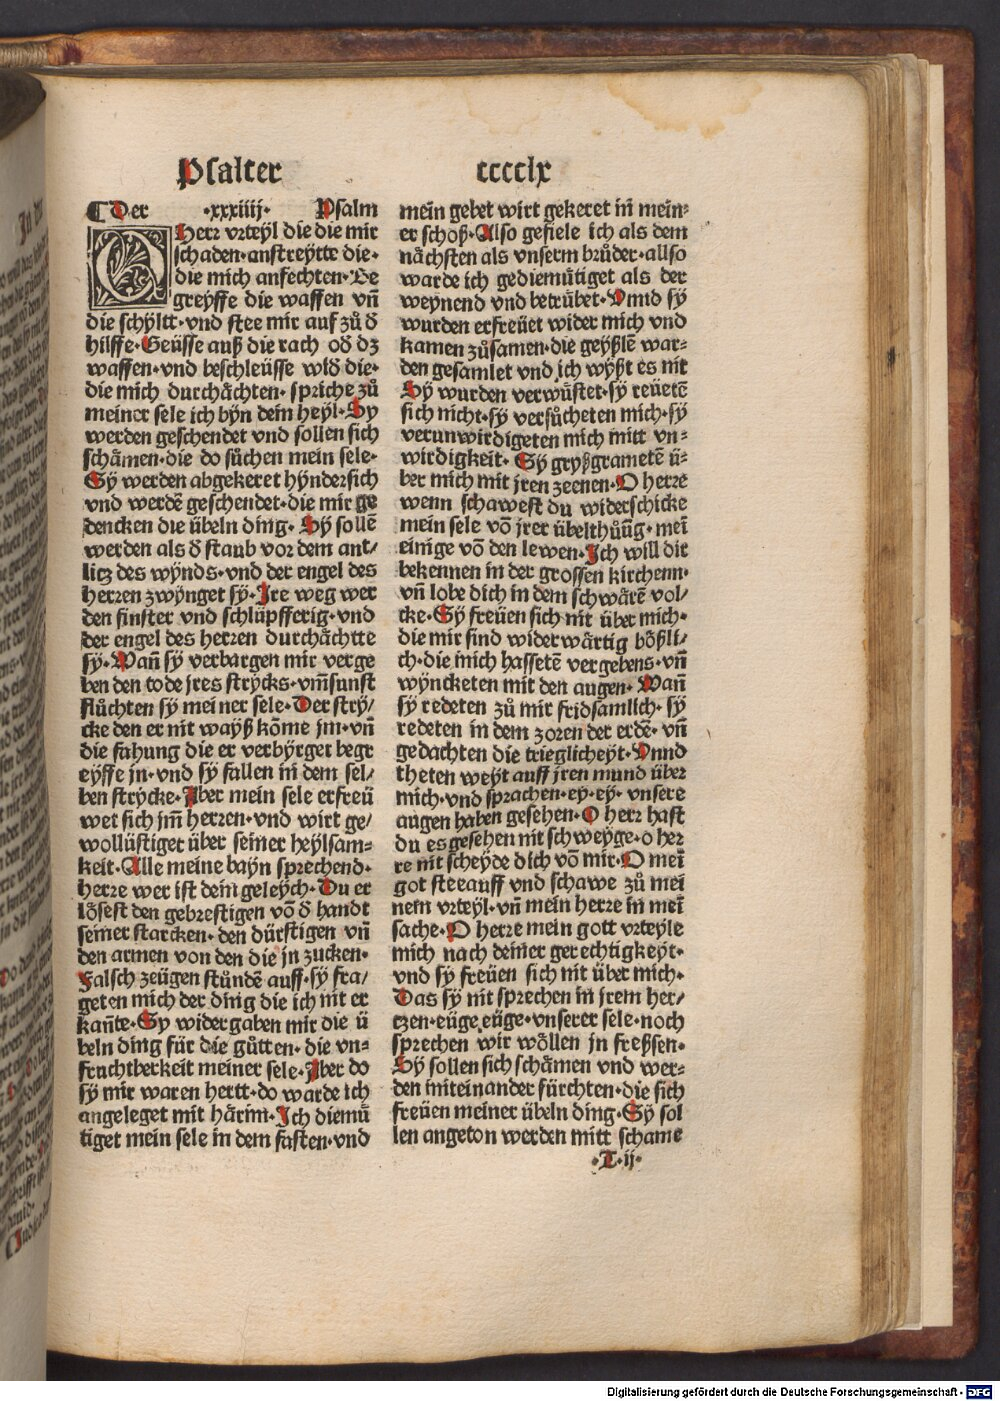 Psalter cccclx
Der .xxxiiij. Psalm
O Herr vrteyl die die mir
schaden·anstreytte die·
die mich anfechten·Be
greyffe die waffen vn̄
die schyltt·vnd stee mir auf zů d̄
hilffe·Geüsse auß die rach od̄ dz
waffen·vnd beschleüsse wid̄ die·
die mich durchåchten·spriche zů
meiner sele ich byn dein heyl·Sy
werden geschendet vnd sollen sich
schåmen·die do sůchen mein sele·
Sÿ werden abgekeret hÿndersich
vnd werdē geschendet·die mir ge
dencken die übeln ding·Sÿ sollē
werden als d̄ staub vor dem ant/
licz des wÿnds·vnd der engel des
herren zwÿnget sÿ·Jre weg wer
den finster vnd schlüpfferig·vnd
der engel des herren durchåchtte
sÿ·Wan̄ sÿ verbargen mir verge
ben den tode jres strÿcks·vm̄sunst
flůchten sÿ meiner sele·Der strÿ/
cke den er nit wayß kōme jm·vn̄
die fahung die er verbÿrget begr
eÿffe jn·vnd sÿ fallen in dem sel/
ben strÿcke·Aber mein sele erfreü
wet sich jm̄ herren·vnd wirt ge/
wollüstiget über seiner heÿlsam-
keit·Alle meine baÿn sprechend·
herre wer ist dein geleÿch·Du er
lösest den gebrestigen vō d̄ handt
seiner starcken·den dürstigen vn̄
den armen von den die jn zucken·
Falsch zeügen stůndē auff·sÿ fra/
geten mich der ding die ich nit er
kan̄te·Sÿ widergaben mir die ü
beln ding für die gůtten·die vn=
fruchtberkeit meiner sele·Aber do
sÿ mir waren hertt·do warde ich
angeleget mit hårin·Ich diemů
tiget mein sele in dem fasten·vnd
mein gebet wirt gekeret in mein=
er schoß·Also gefiele ich als dem
nåchsten als vnserm brůder·allso
warde ich gediemůtiget als der
weÿnend vnd betrůbet·Vnnd sÿ
wurden erfreüet wider mich vnd
kamen zůsamen·die geÿßlē war=
den gesamlet vnd ich wÿßt es nit
Sÿ wurden verwůstet·sÿ reüetē
sich nicht·sÿ versůcheten mich·sÿ
verunwirdigeten mich mitt vn=
wirdigkeit·Sÿ grÿßgrametē ü=
ber mich mit jren zeenen·O herre
wenn schawest du widerschicke
mein sele vō jrer übelthůūg·mei
einige vō den lewen·Ich will dir
bekennen in der grossen kirchenn·
vn̄ lobe dich in dem schwårē vol/
cke·Sÿ freüen sich nit über mich·
die mir sind widerwårtig bößli/
ch·die mich hassetē vergebens·vn̄
wÿncketen mit den augen·Wan̄
sÿ redeten zů mir fridsamlich·sÿ
redeten in dem zoren der erdē·vn̄
gedachten die trieglicheÿt·Vnnd
theten weÿt auff jren mund über
mich·vnd sprachen·eÿ·eÿ·vnsere
augen haben gesehen·O herr hast
du es gesehen nit schweÿge·o her
re nit scheÿde dich vō mir·O mei
got steeauff vnd schawe zů mei
nem vrteÿl·vn̄ mein herre in mei
sache·O herre mein gott vrteyle
mich nach deiner gerechtigkeÿt·
vnd sÿ freüen sich nit über mich·
Das sÿ nit sprechen in jrem her/
czen·eüge eüge·vnserer sele·noch
sprechen wir wöllen jn freßsen·
Sÿ sollen sich schåmen vnd wer=
den miteinander fürchten·die sich
freüen meiner übeln ding·Sÿ sol
len angeton werden mitt schame
.T.ij.
Digitalisierung gefördert durch die Deutsche Forschungsgemeinschaft - DFG